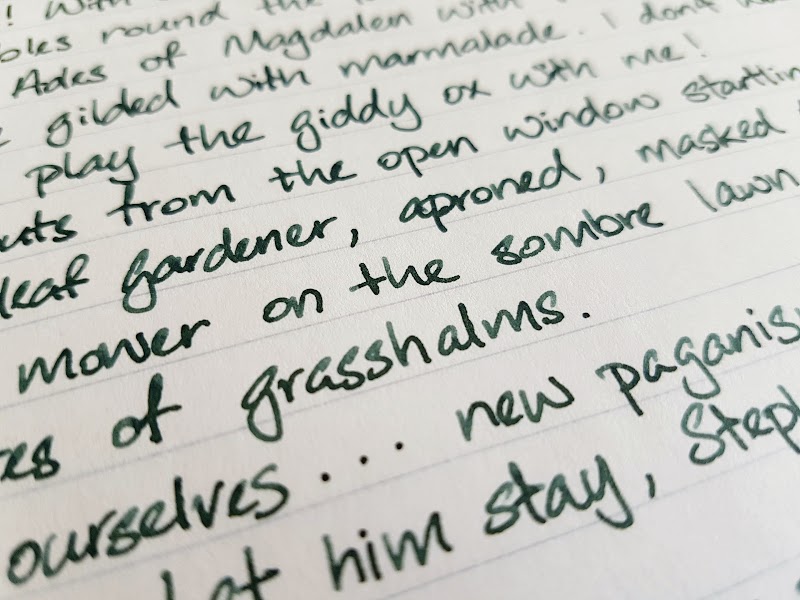 ! With
round the
Ades of Magdalen with
gilded with marmalade. I don't
play the giddy ox with me!
from the open window startlin
gardener, aproned, masked
mower on the sombre lawn
of grasshalms.
ourselves... new paganis
him stay, Steph